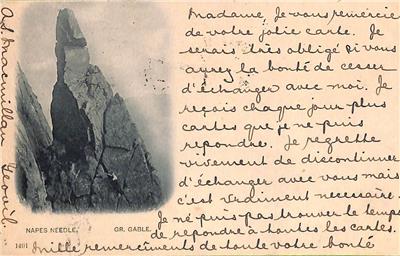 Madame, Je vous remercie
de votre jolie carte. Je
serais très obligé si vous
aurez la bonté de cesser
d'échanger avec moi. Je
reçois chaque jour plus
cartes que je ne puis
repondre. Je regrette
vivement de discontinuer
d'échanger avec vous mais
c'est vraiment necessaire.
Je ne puis pas trouver le temps
de repondre à toutes les cartes.
Mille remerciments de toute votre bonté
A.S. Macmillan
Yeovil.
NAPES NEEDLE. GR. GABLE.
1401